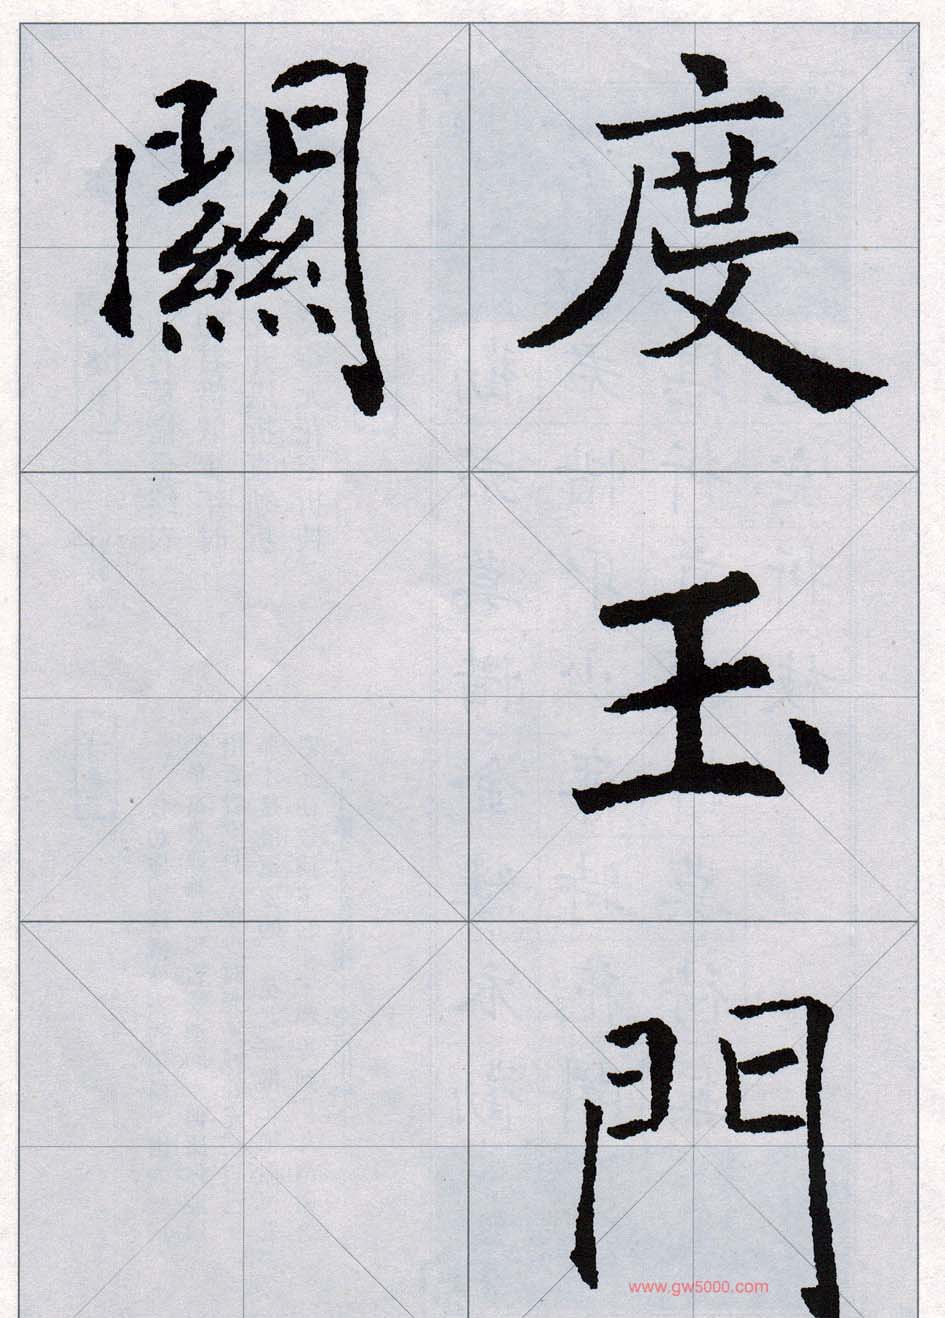 度玉門
關
www.gw5000.com